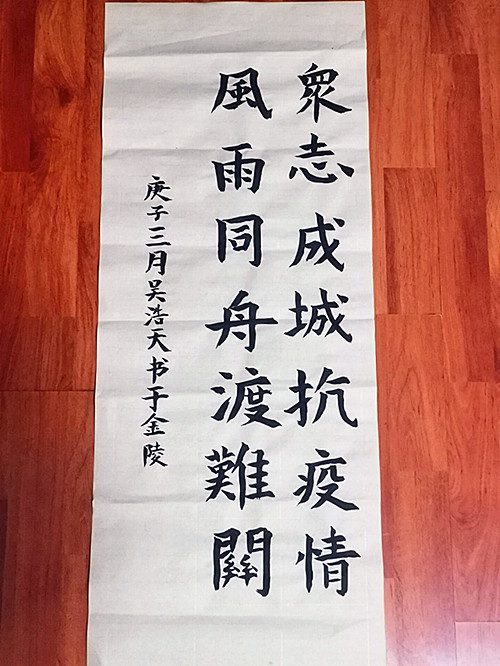 眾志成城抗疫情
風雨同舟渡難關
庚子三月吴浩天书于金陵